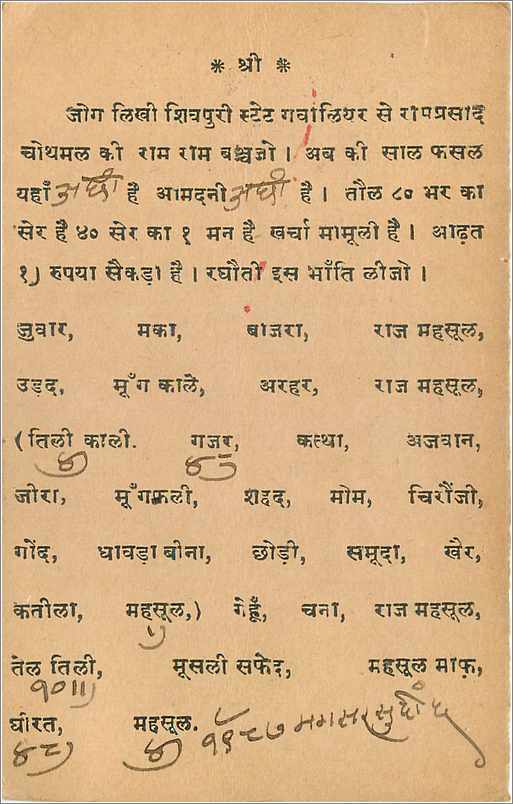 * श्री *
जोग लिखी शिवपुरी स्टेट गवालियर से रामप्रसाद
चोथमल की राम राम बञ्चजो । अब की साल फसल
यहाँ अछी है आमदनी अछी है । तौल ८० भर का
सेर है ४० सेर का १ मन है खर्चा मामूली है । आढ़त
१) रुपया सैकड़ा है । रघौती इस भाँति लीजो ।
जुवार, मका, बाजरा, राज महसूल,
उड़द, मूँग काले, अरहर, राज महसूल,
(तिली काली. गजर, कत्था, अजवान,
जीरा, मूँगफली, शहद, मोम, चिरौंजी,
गोंद, धावड़ा बीना, छोड़ी, समूदा, खैर,
कतीला, महसूल,) गेहूँ, चना, राज महसूल,
तेल तिली, मूसली सफेद, महसूल माफ़,
१०॥)
घीरत, महसूल. १९८७ मगसर सुदी